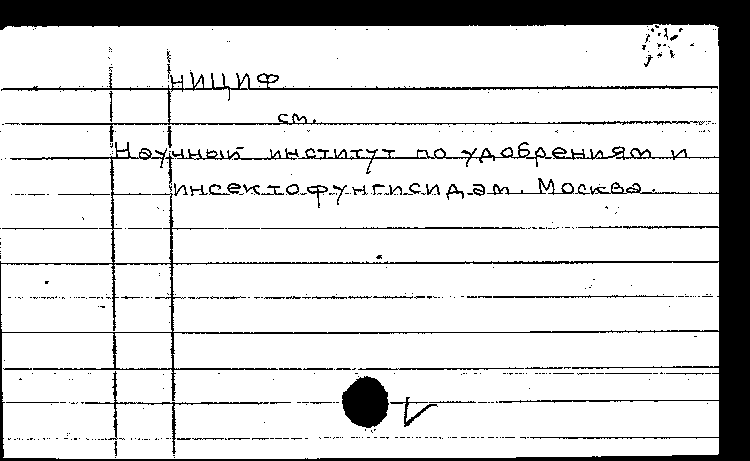 НИЦИФ
см.
Научный институт по удобрениям и
инсектофунгисидам. Москва.